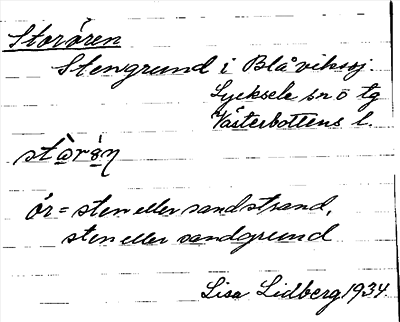 Storören
Stengrund i Blåviksj.
Lycksele sn o tg
Västerbottens l.
ör = sten eller sandstrand,
sten eller sandgrund
Lisa Lidberg 1934